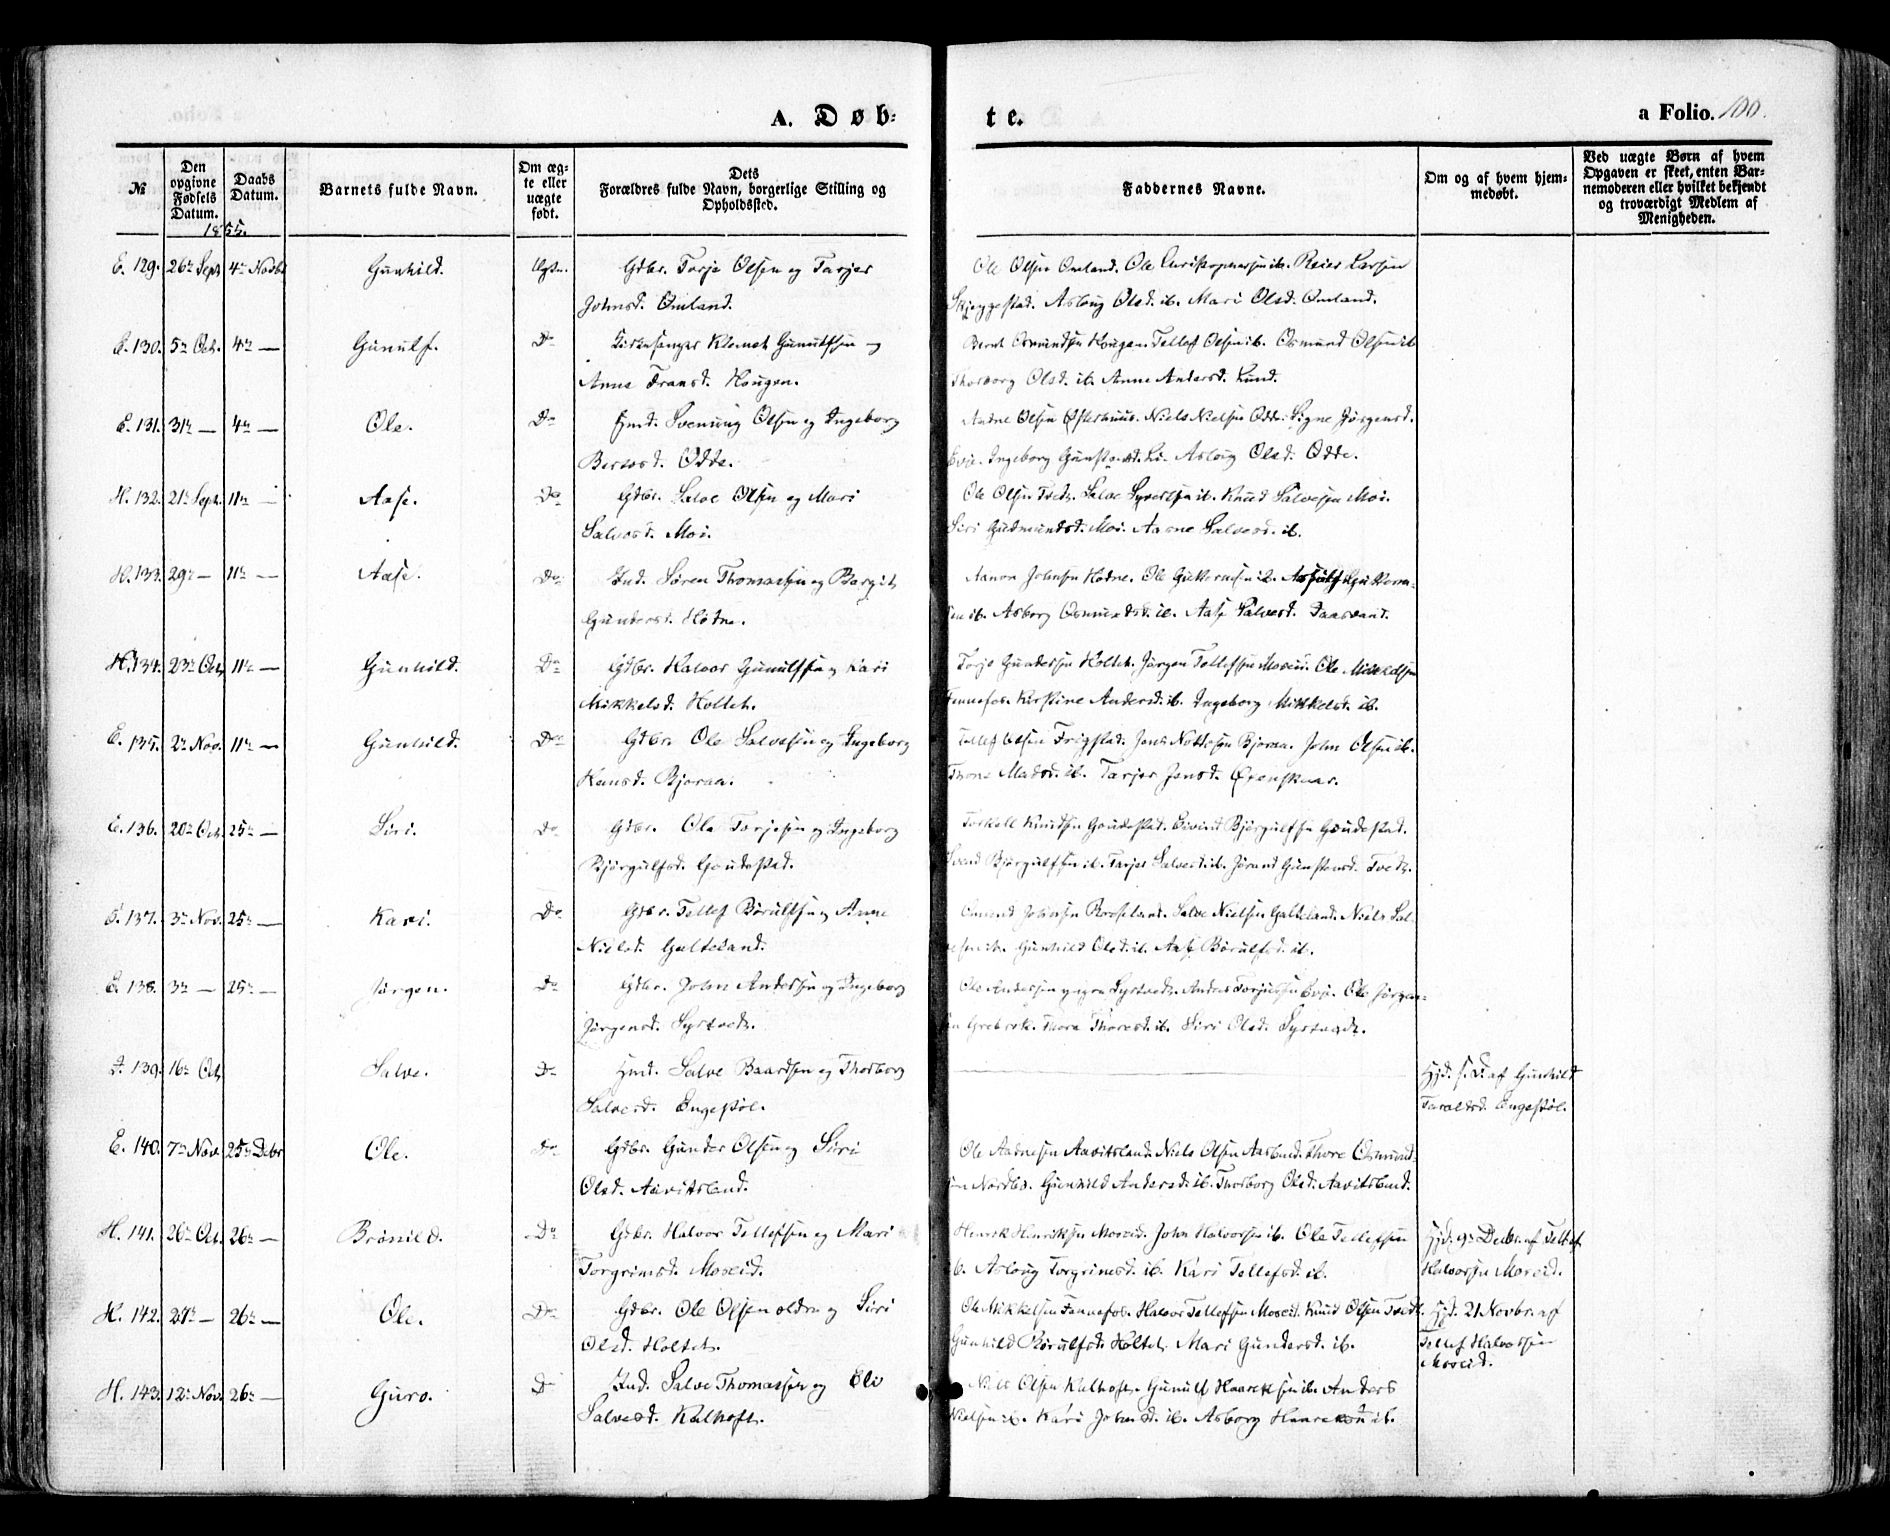 A. Døb-
te.
a Folio. 100.
№
Den opgivne Fødsels Datum.
Daabs Datum.
Barnets fulde Navn.
Om ægte eller uægte født.
Dets Forældres fulde Navn, borgerlige Stilling og Opholdssted.
Faddernes Navne.
Om og af hvem hjemmedøbt.
Ved uægte Børn af hvem Opgaven er skeet, enten Barnemoderen eller hvilket bekjendt og troværdigt Medlem af Menigheden.
1855.
E. 129. 26de Sept 4de Novbr Gunhild. Ægte. Gdbr. Torje Olsen og Tarjer
Johnsd. Omland.
Ole Olsen Omland. Ole ib. Reier Larsen
Skjeggestad. Aslaug Olsd. ib. Mari Olsd. Omland.
E. 130. 5te Oct. 4de — Gunulf. Do Kirkesanger Klemet Gunulfsen og
Anne Fransd. Hougen.
Bernt Osmundsen Hougen. Tellef Olsen ib. Osmund Olsen ib.
Thorborg Olsd. ib. Anne Andersd. Lund.
E. 131. 31te — 4de — Ole. Do Hmd. Svenning Olsen og Ingeborg
Odde.
Olsen Østerhuus. Niels Nielsen Odde. Signe Jørgensd.
Evie. Ingeborg Aslaug Olsd. Odde.
H. 132. 21de Sept. 11te — Aase. Do Gdbr. Salve Olsen og Mari
Salvesd. Moi.
Ole Olsen Tvedt. Salve Syvertsen ib. Knud Salvesen Moi.
Siri Gudmundsd. Moi. Aasne Salvesd. ib.
H. 133. 29de — 11te — Aase. Do Ind. Søren Thomassen og Bargit
Gundersd. Hodne.
Aanon Johnsen Hodne. Ole Guttormsen ib. Asulf Guttorm-
sen ib. Asborg Osmundsd. ib. Aase Salvesd. Daasvand.
H. 134. 23de Oct. 11te — Gunhild. Do Gdbr. Halvor Gunulfsen og Kari
Mikkelsd. Holtet.
Torje Gundersen Holtet. Jørgen Tellefsen Moseid. Ole Mikkelsen
Fennefos. Kirstine Andersd. ib. Ingeborg Mikkelsd. ib.
E. 135. 2de Nov. 11te — Gunhild. Do Gdbr. Ole Salvesen og Ingeborg
Bjoraa.
Tellef Olsen Frigstad. Jens Bjoraa. John Olsen ib.
Thone Madsd. ib. Tarjer Jensd.
E. 136. 20de Oct. 25de — Siri. Do Gdbr. Ole Torjesen og Ingeborg
Bjørgulfsd. Goudestad.
Torkell Knudsen Goudestad. Eivind Bjørgulfsen Goudestad.
Svend Bjørgulfsen ib. Tarjer Salvesd. ib. Jorand Gunstensd. Tvedt.
E. 137. 3de Nov. 25de — Kari. Do Gdbr. Tellef Børulfsen og Anne
Nielsd. Galteland.
Omund Johnsen Rosseland. Salve Nielsen Galteland. Niels Sal-
vesen ib. Gunhild Olsd. ib. Aase Børulfsd. ib.
E. 138. 3de — 25de — Jørgen. Do Gdbr. John Andersen og Ingeborg
Jørgensd. Syrtvedt.
Ole Andersen yngre Syrtvedt. Anders Torjussen Evje. Ole Jørgen-
sen Thora Thoresd. ib. Siri Olsd. Syrtvedt.
139. 16de Oct. Salve. Do Hmd. Salve Baardsen og Thorborg
Salvesd. Engestøl.
Hjd. s. D. af Gunhild
Taraldsd. Engestøl.
E. 140. 7de Nov. 25de Debr Ole. Do Gdbr. Gunder Olsen og Siri
Olsd. Aavitsland.
Ole Aadnesen Aavitsland. Niels Olsen Thore Osmund-
sen Gunhild Andersd. ib. Thorborg Olsd. Aavitsland.
H. 141. 26de Oct. 26de — Brønild. Do Gdbr. Halvor Tellefsen og Mari
Torgrimsd. Moseid.
Henrik Henriksen Moseid. John Halvorsen ib. Ole Tellefsen
ib. Aslaug Torgrimsd. ib. Kari Tellefsd. ib.
Hjd. 9de Debr. af Tellef
Halvorsen Moseid.
H. 142. 27de — 26de — Ole. Do Gdbr. Ole Olsen ældre og Siri
Olsd. Holtet.
Ole Mikkelsen Fennefos. Halvor Tellefsen Moseid. Knud Olsen Tvedt.
Gunhild Børulfsd. Holtet. Mari Gundersd. ib.
Hjd. 21 Novbr. af
Tellef Halvorsen
Moseid.
H. 143. 12te Nov. 26de — Guro. Do Ind. Salve Thomassen og Eli
Salvesd. Kalhoft.
Niels Olsen Kalhoft. Gunulf Haareksen ib. Anders
Nielsen ib. Kari Johnsd. ib. Asborg Haareksd. ib.